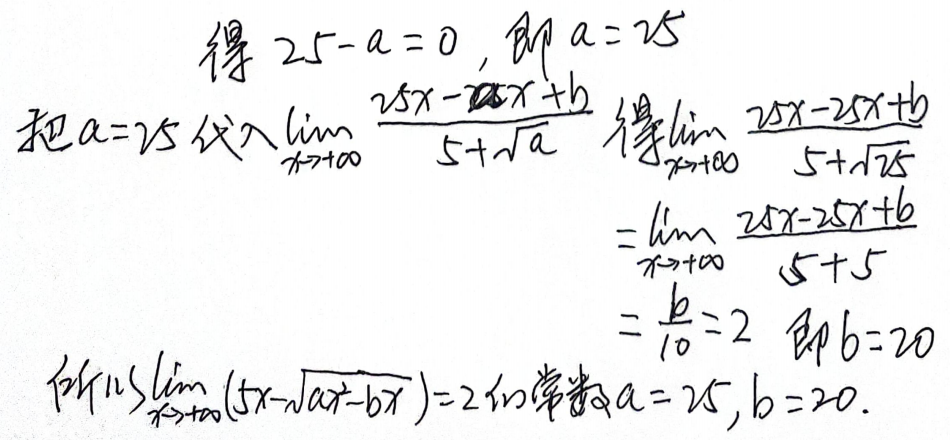 得 25-a=0, 即 a=25
把a=25代入 lim x→+∞ (25x-ax+b)/(5+√a) 得 lim x→+∞ (25x-25x+b)/(5+√25)
= lim x→+∞ (25x-25x+b)/(5+5)
= b/10 = 2 即 b=20
所以 lim x→+∞ (5x-√(ax²-bx))=2的常数a=25, b=20.